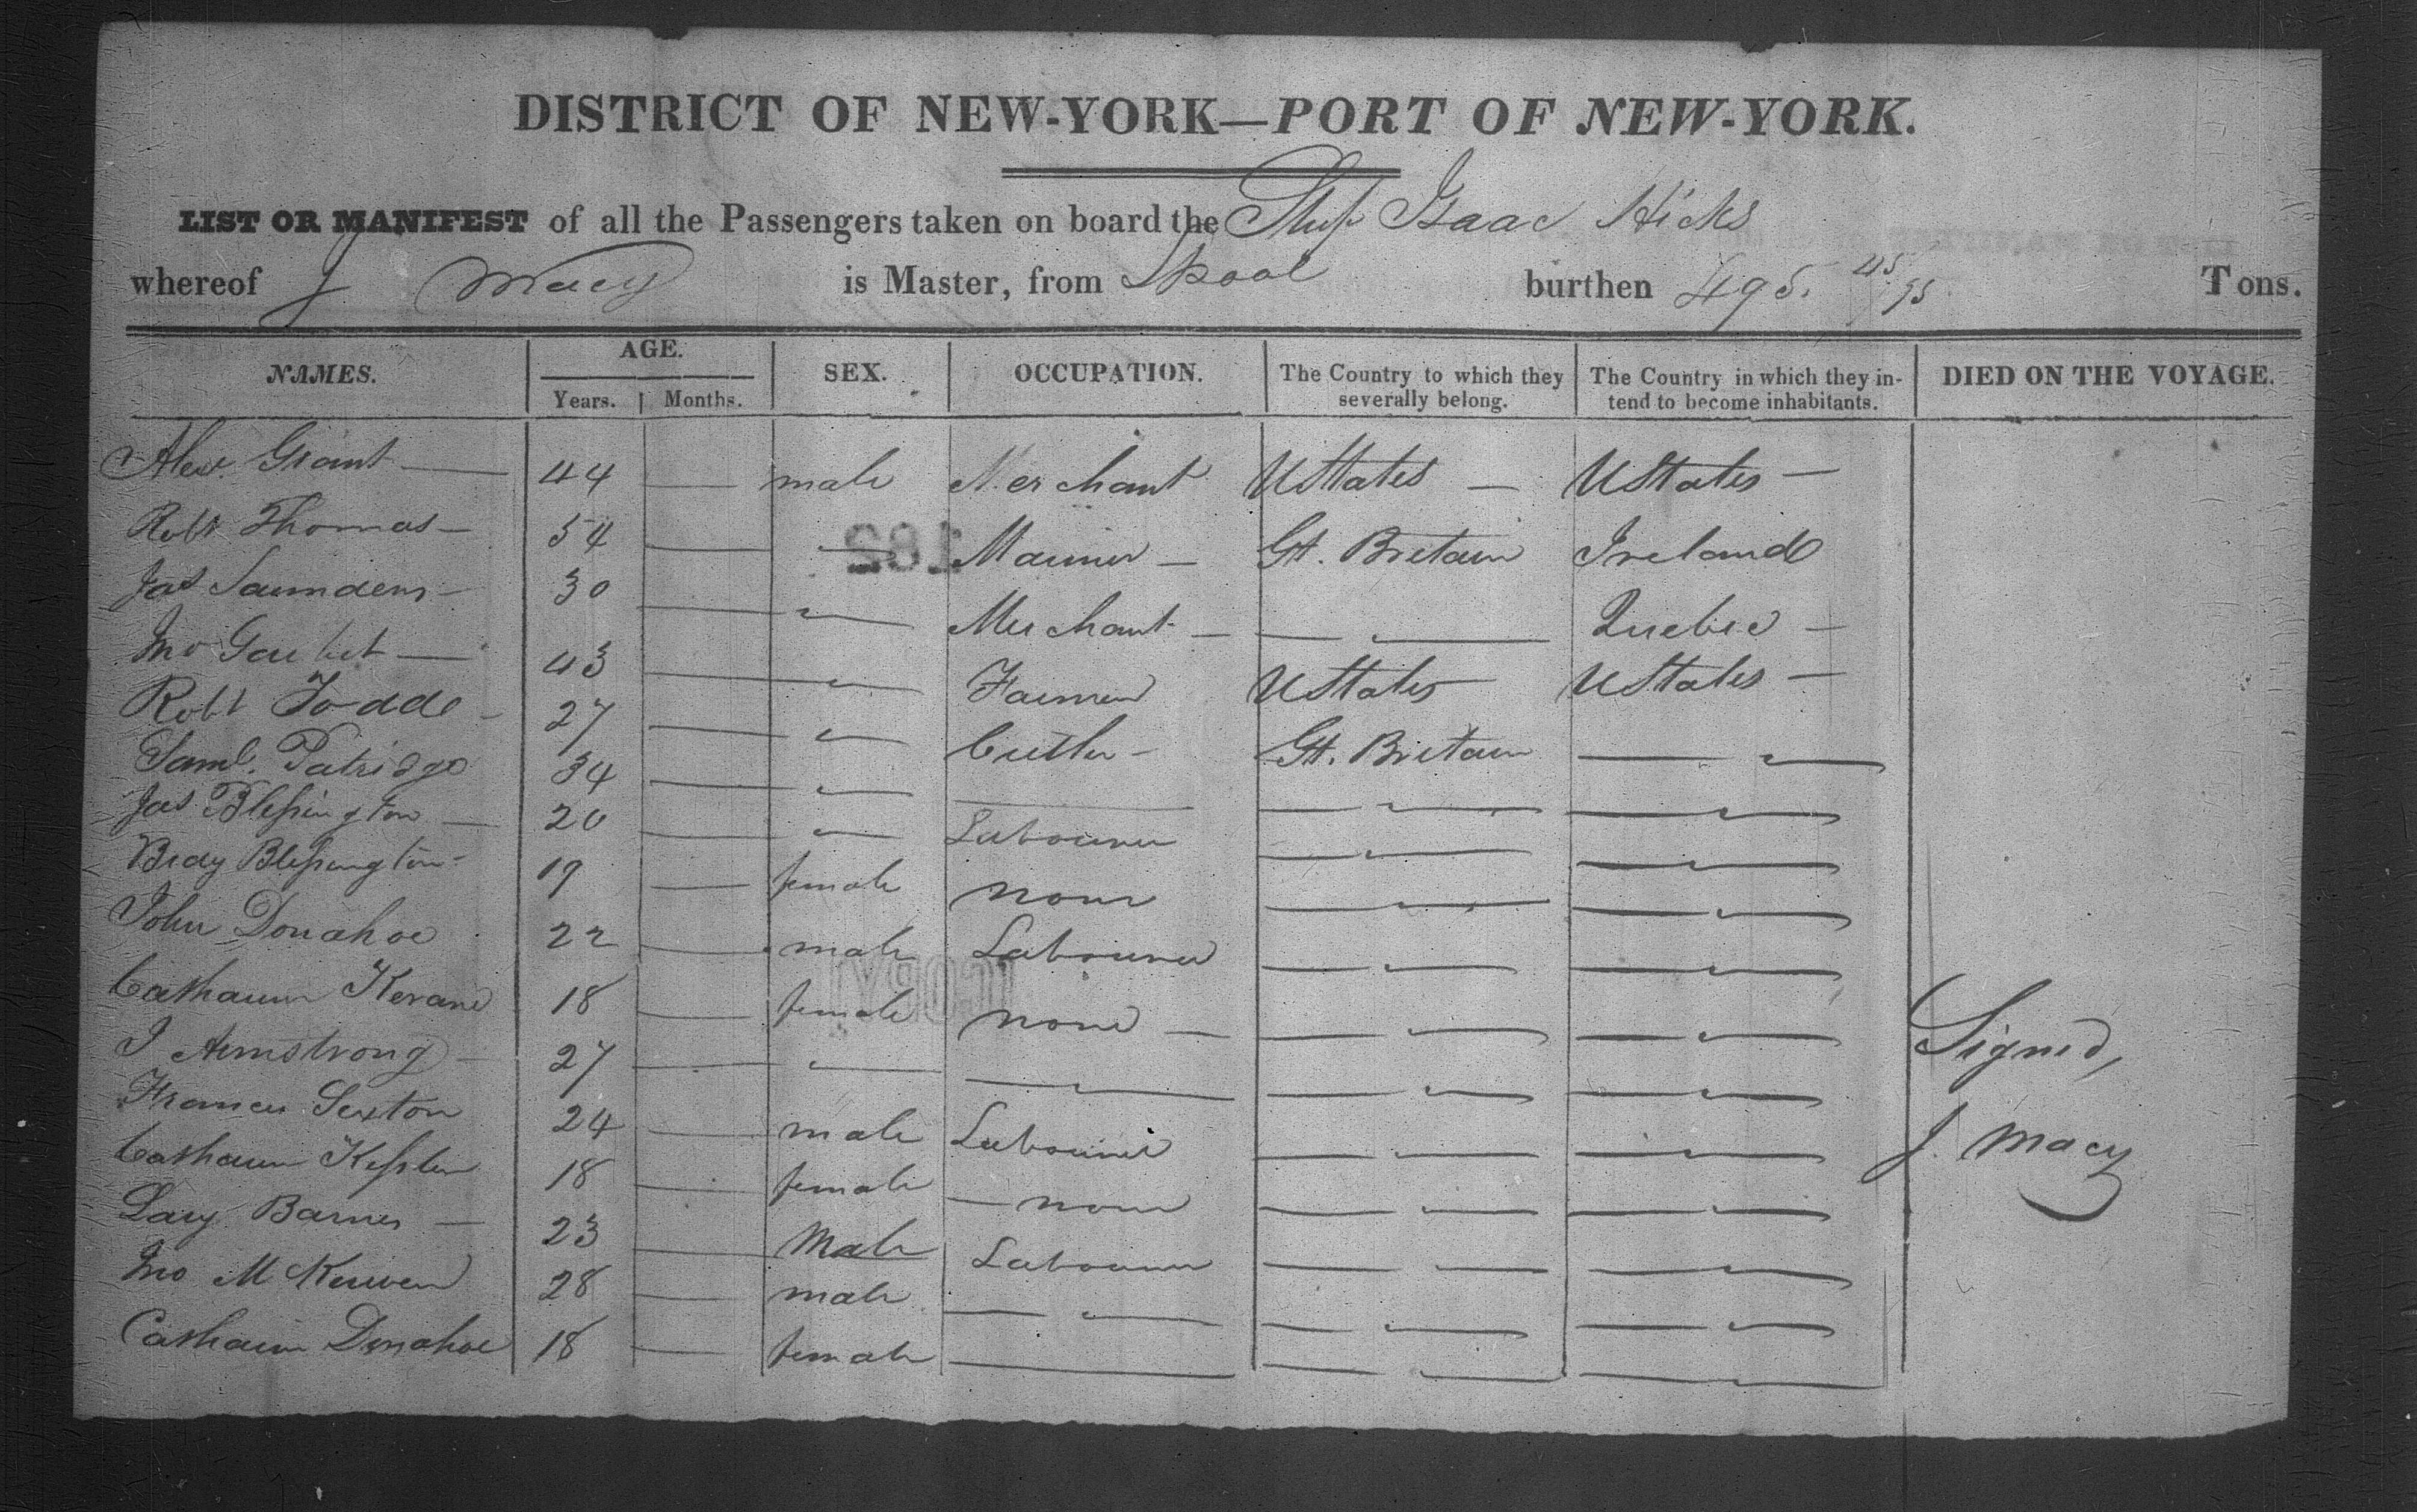 DISTRICT OF NEW-YORK—PORT OF NEW-YORK.
LIST OR MANIFEST of all the Passengers taken on board the Ship Isaac Hicks
whereof J Macy is Master, from Lpool burthen 495. 45/95 Tons.
NAMES. AGE. Years. Months. SEX. OCCUPATION. The Country to which they severally belong. The Country in which they intend to become inhabitants. DIED ON THE VOYAGE.
Alexr Grant — 44 — male Merchant UStates — UStates —
Robt Thomas — 54 — — Mariner — Gt. Britain Ireland
Jas Saunders — 30 — — Merchant — — Quebec —
Jno — 43 — — Farmer UStates UStates —
Robt Todd — 27 — — Cutler — Gt. Britain —
Saml. Patridge 34 — — — — —
Jas Blessington — 20 — — Labourer — —
Bidy Blessington - 19 — female none — —
John Donahoe 22 — male Labourer — —
Catharine Kerane 18 — female none — — —
J Armstrong — 27 — — — — —
Frances Sexton 24 — male Labourer — —
Catharine Kesslen 18 — female — none — —
Lary Barnes — 23 — Male Labourer — —
Jno McKeuwen 28 — male — — —
Catharin Donahoe 18 — female — — —
Signed,
J. Macy
182
COPY